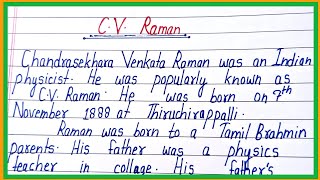 C.V. Raman
Chandrasekhara Venkata Raman was an Indian
physicist. He was popularly known as
C.V. Raman. He was born on 7th
November 1888 at Thiruchirappalli.
Raman was born to a Tamil Brahmin
parents. His father was a physics
teacher in collage. His father's